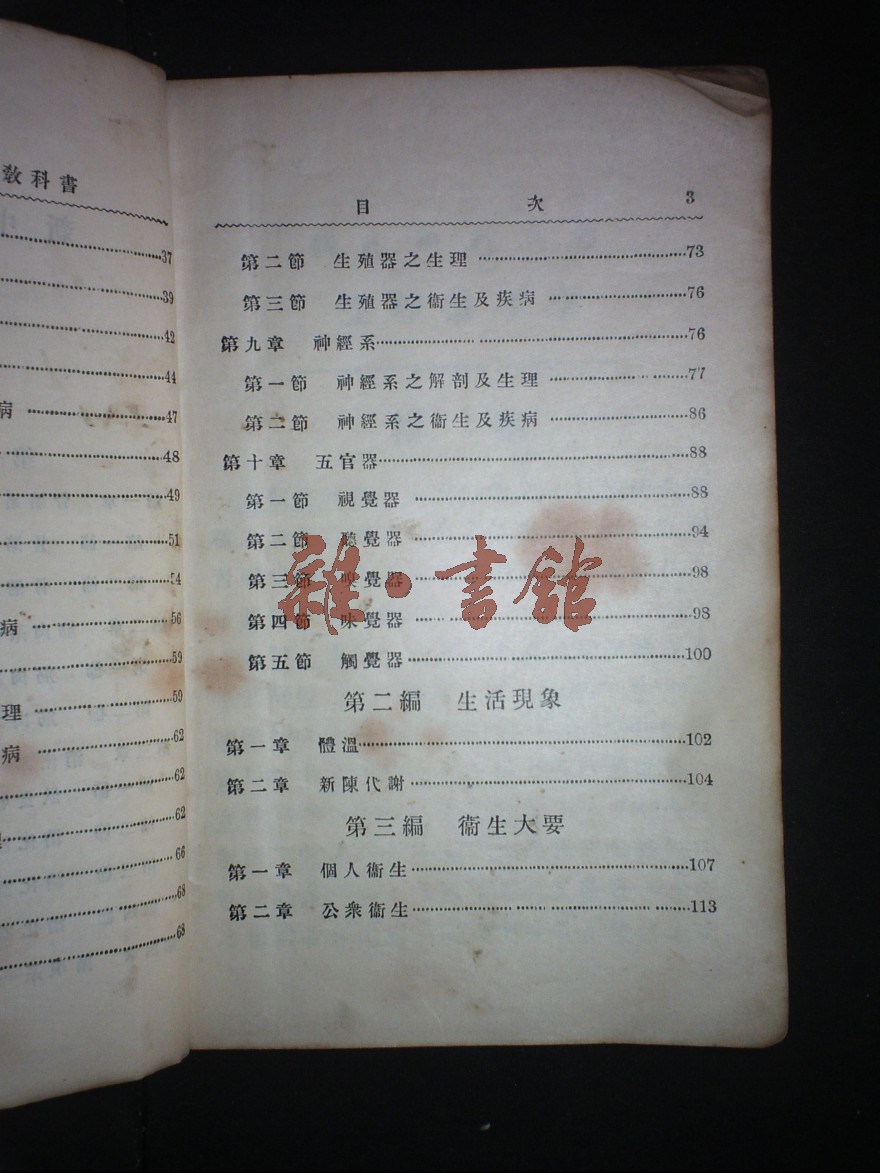 教科書
37
39
42
44
病 47
48
49
51
54
病 56
59
理 59
病 62
62
62
66
68
68
目 次 3
第二節 生殖器之生理 73
第三節 生殖器之衞生及疾病 76
第九章 神經系 76
第一節 神經系之解剖及生理 77
第二節 神經系之衞生及疾病 86
第十章 五官器 88
第一節 視覺器 88
第二節 聽覺器 94
第三節 嗅覺器 98
第四節 味覺器 98
第五節 觸覺器 100
第二編 生活現象
第一章 體溫 102
第二章 新陳代謝 104
第三編 衞生大要
第一章 個人衞生 107
第二章 公衆衞生 113
雜·書館